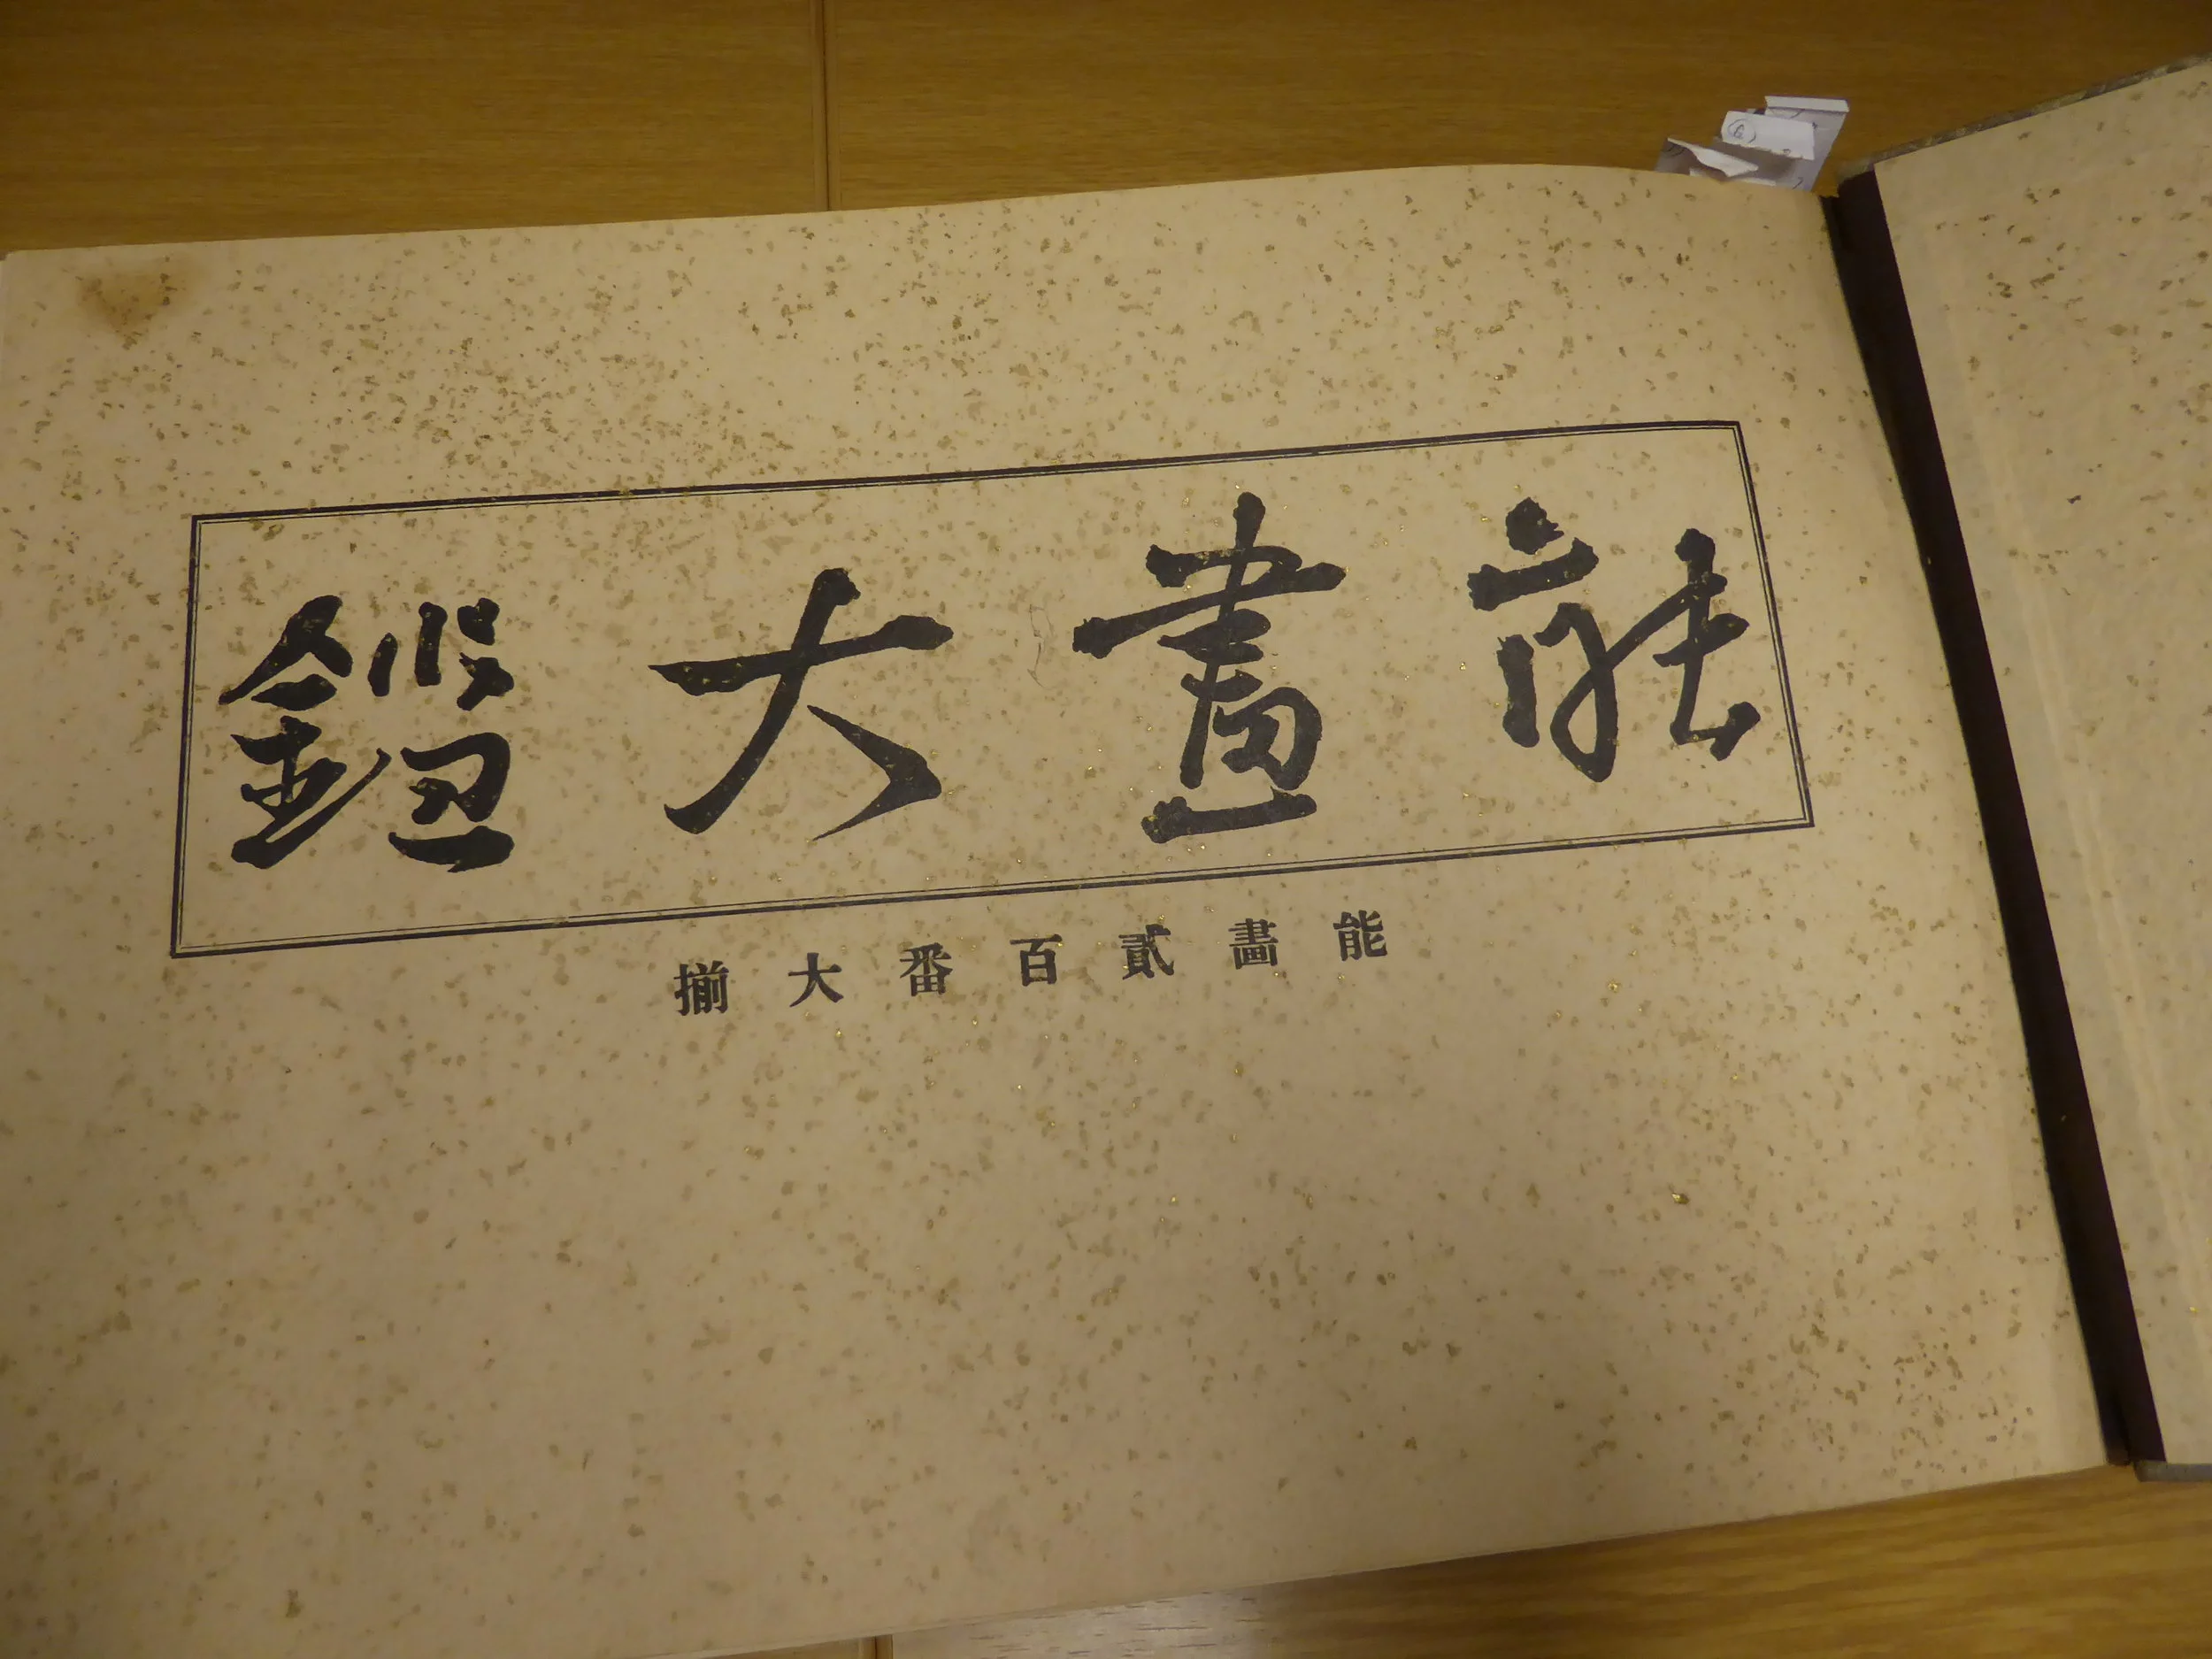 能畫大鑑
能畫貳百番大揃